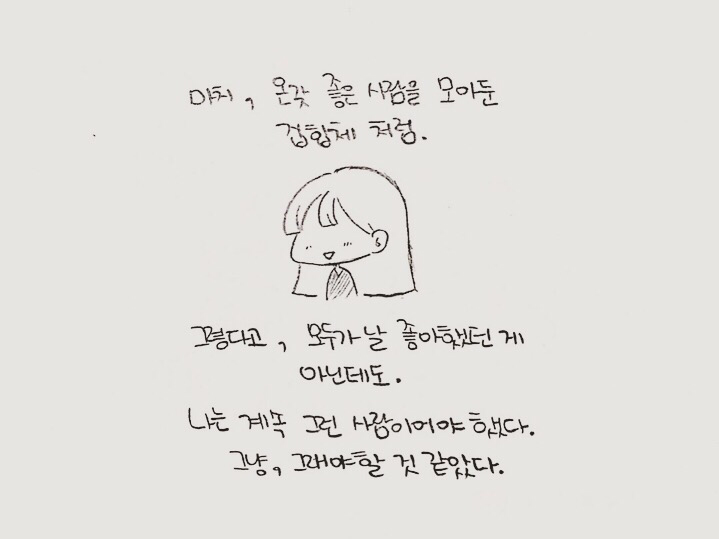 마치, 온갖 좋은 사람을 모아둔
겁합체 처럼.
그렇다고, 모두가 날 좋아했던 게
아닌데도.
나는 계속 그런 사람이어야 했다.
그냥, 그래야할 것 같았다.